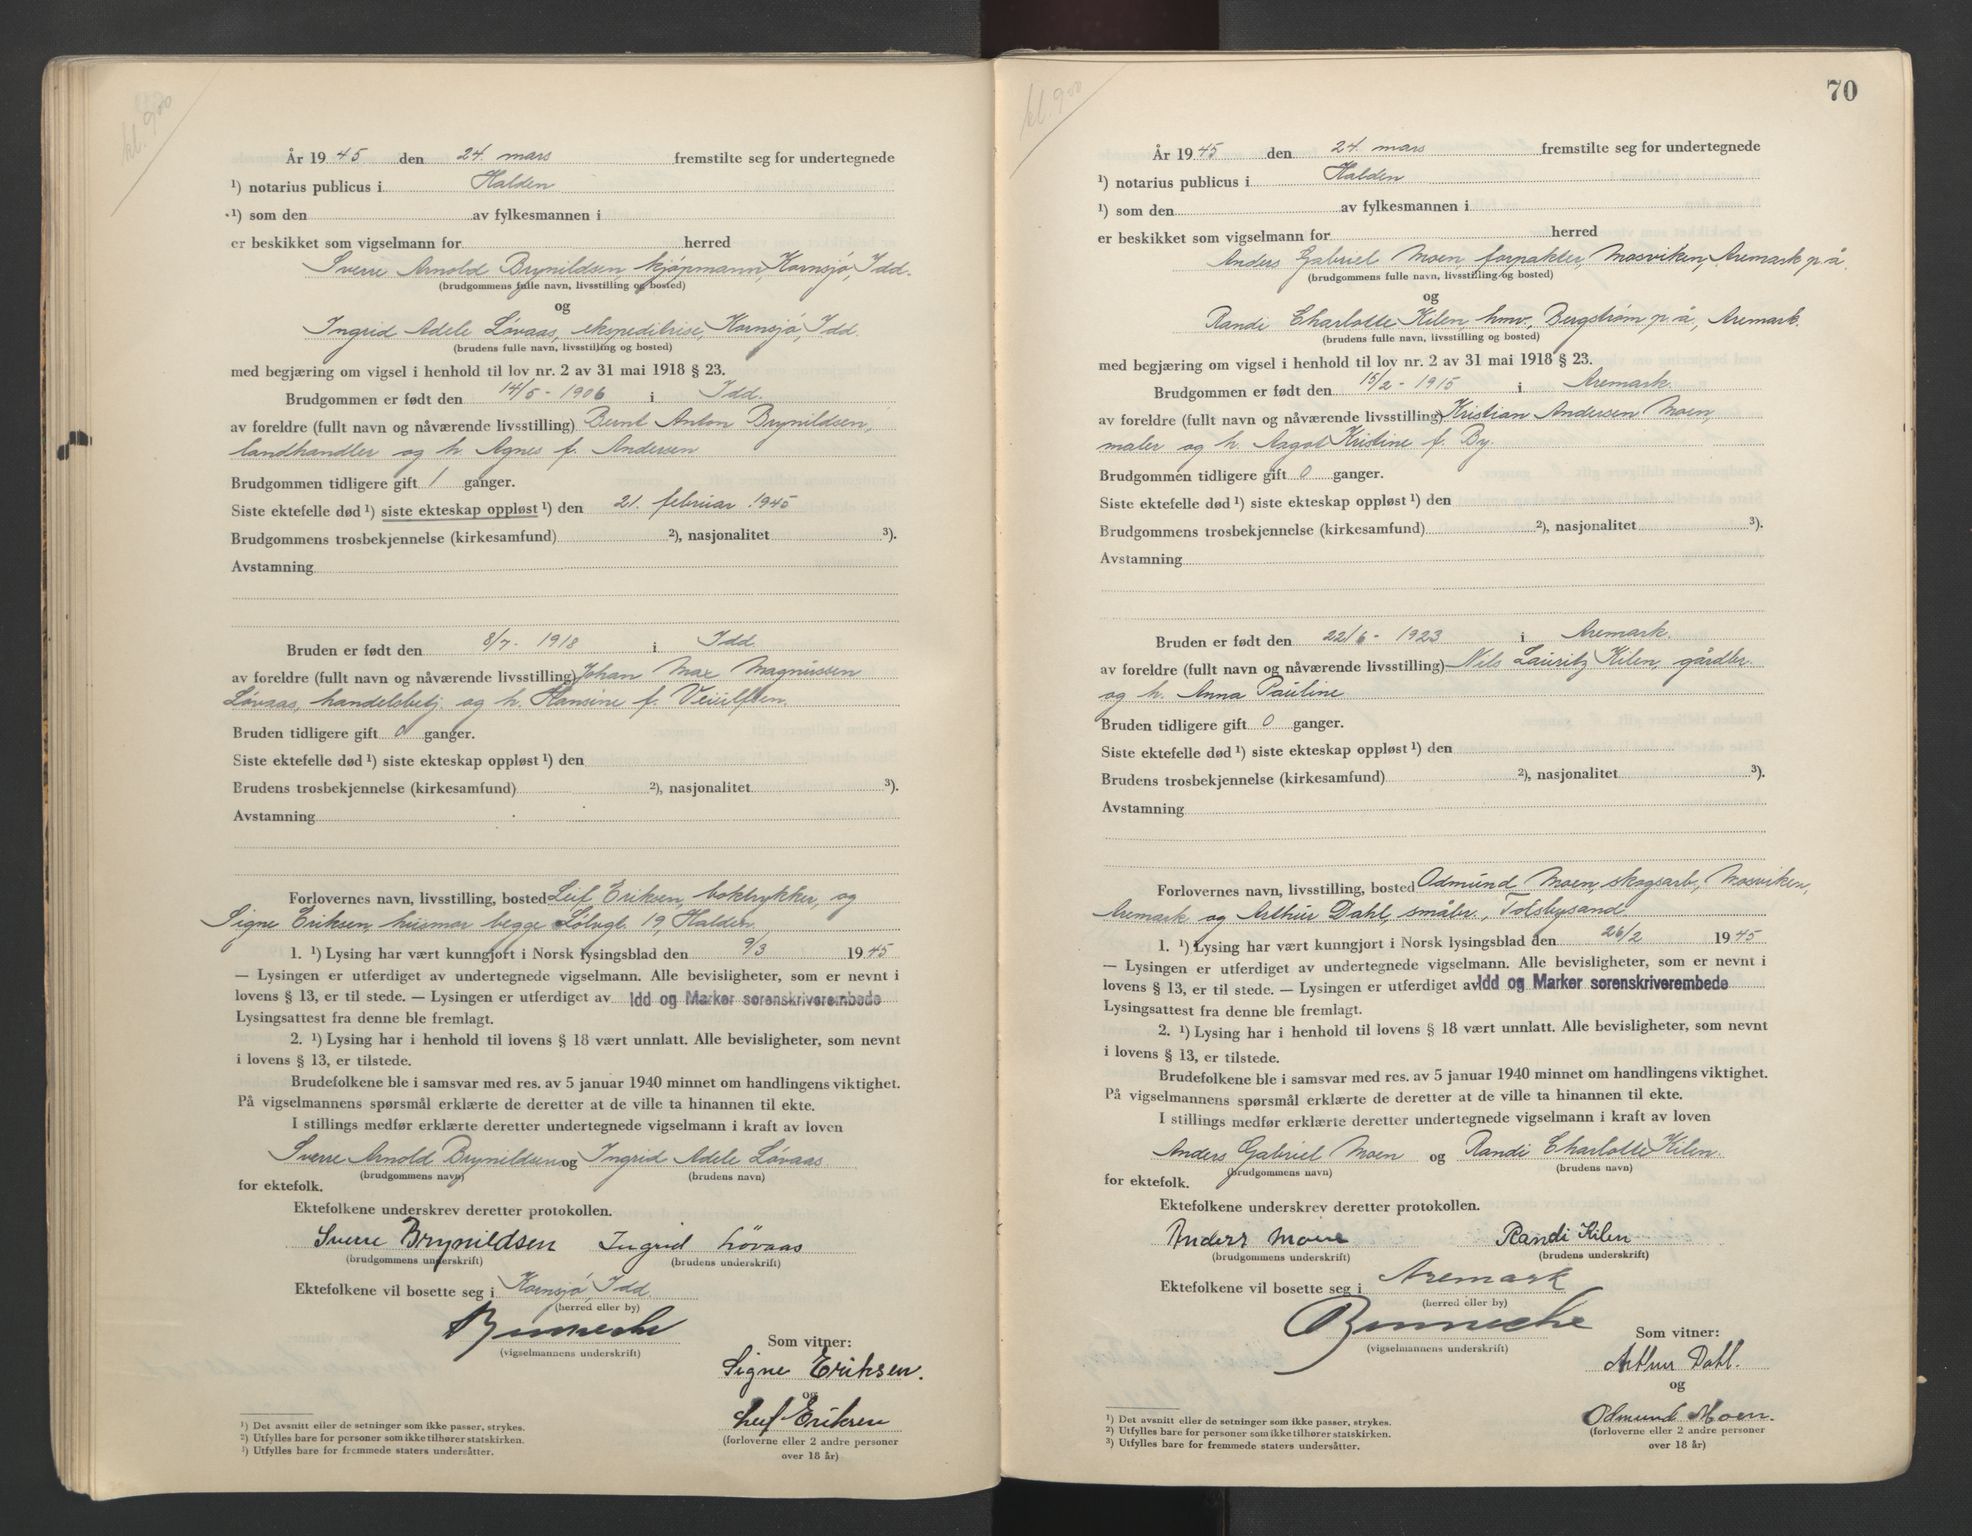 kl. 9⁰⁰
År 1945 den 24. mars fremstilte seg for undertegnede
¹) notarius publicus i Halden
¹) som den av fylkesmannen i
er beskikket som vigselmann for herred
Sverre Arnold Brynildsen, kjøpmann, Kornsjø, Idd.
(brudgommens fulle navn, livsstilling og bosted)
og
Ingrid Adele Løvaas, ekspeditrise, Kornsjø, Idd.
(brudens fulle navn, livsstilling og bosted)
med begjæring om vigsel i henhold til lov nr. 2 av 31 mai 1918 § 23.
Brudgommen er født den 14/5 - 1906 i Idd.
av foreldre (fullt navn og nåværende livsstilling) Bernt Anton Brynildsen,
landhandler og h. Agnes f. Andersen
Brudgommen tidligere gift 1 ganger.
Siste ektefelle død ¹) siste ekteskap oppløst ¹) den 21. februar 1945
Brudgommens trosbekjennelse (kirkesamfund) ²), nasjonalitet ³).
Avstamning
Bruden er født den 8/7 - 1918 i Idd.
av foreldre (fullt navn og nåværende livsstilling) Johan Max Magnussen
Løvaas, handelsbetj. og h. Hansine f.
Bruden tidligere gift 0 ganger.
Siste ektefelle død ¹) siste ekteskap oppløst ¹) den
Brudens trosbekjennelse (kirkesamfund) ²), nasjonalitet ³).
Avstamning
Forlovernes navn, livsstilling, bosted Leif Eriksen, boktrykker, og
Signe Eriksen, husmor begge Sølvgt. 19, Halden.
1. ¹) Lysing har vært kunngjort i Norsk lysingsblad den 9/3 1945
— Lysingen er utferdiget av undertegnede vigselmann. Alle bevisligheter, som er nevnt i
lovens § 13, er til stede. — Lysingen er utferdiget av Idd og Marker sorenskriverembede
Lysingsattest fra denne ble fremlagt.
2. ¹) Lysing har i henhold til lovens § 18 vært unnlatt. Alle bevisligheter, som nevnt
i lovens § 13, er tilstede.
Brudefolkene ble i samsvar med res. av 5 januar 1940 minnet om handlingens viktighet.
På vigselmannens spørsmål erklærte de deretter at de ville ta hinannen til ekte.
I stillings medfør erklærte deretter undertegnede vigselmann i kraft av loven
Sverre Arnold Brynildsen og Ingrid Adele Løvaas
(brudgommens navn) (brudens navn)
for ektefolk.
Ektefolkene underskrev deretter protokollen.
Sverre Brynildsen Ingrid Løvaas
(brudgommens underskrift) (brudens underskrift)
Ektefolkene vil bosette seg i Kornsjø, Idd.
(herred eller by)
(vigselmannens underskrift)
Som vitner:
Signe Eriksen.
og
Leif Eriksen
(forloverne eller 2 andre personer
over 18 år)
¹) Det avsnitt eller de setninger som ikke passer, strykes.
²) Utfylles bare for personer som ikke tilhører statskirken.
³) Utfylles bare for fremmede staters undersåtter.
70
kl. 9⁰⁰
År 1945 den 24. mars fremstilte seg for undertegnede
¹) notarius publicus i Halden
¹) som den av fylkesmannen i
er beskikket som vigselmann for herred
Anders Gabriel Moen, forpakter, Mosviken, Aremark p.å.
(brudgommens fulle navn, livsstilling og bosted)
og
Randi Charlotte Kilen, hmv, Bergstrøm p.å., Aremark.
(brudens fulle navn, livsstilling og bosted)
med begjæring om vigsel i henhold til lov nr. 2 av 31 mai 1918 § 23.
Brudgommen er født den 15/2 - 1915 i Aremark.
av foreldre (fullt navn og nåværende livsstilling) Kristian Andersen Moen,
maler og h. Aagot Kristine f. By.
Brudgommen tidligere gift 0 ganger.
Siste ektefelle død ¹) siste ekteskap oppløst ¹) den
Brudgommens trosbekjennelse (kirkesamfund) ²), nasjonalitet ³).
Avstamning
Bruden er født den 22/6 - 1923 i Aremark.
av foreldre (fullt navn og nåværende livsstilling) Nils Lauritz Kilen, gårdbr.
og h. Anna Pauline
Bruden tidligere gift 0 ganger.
Siste ektefelle død ¹) siste ekteskap oppløst ¹) den
Brudens trosbekjennelse (kirkesamfund) ²), nasjonalitet ³).
Avstamning
Forlovernes navn, livsstilling, bosted Odmund Moen, skogsarb., Mosviken,
Aremark og Arthur Dahl, småbr., Tolsbysand.
1. ¹) Lysing har vært kunngjort i Norsk lysingsblad den 26/2 1945
— Lysingen er utferdiget av undertegnede vigselmann. Alle bevisligheter, som er nevnt i
lovens § 13, er til stede. — Lysingen er utferdiget av Idd og Marker sorenskriverembede
Lysingsattest fra denne ble fremlagt.
2. ¹) Lysing har i henhold til lovens § 18 vært unnlatt. Alle bevisligheter, som nevnt
i lovens § 13, er tilstede.
Brudefolkene ble i samsvar med res. av 5 januar 1940 minnet om handlingens viktighet.
På vigselmannens spørsmål erklærte de deretter at de ville ta hinannen til ekte.
I stillings medfør erklærte deretter undertegnede vigselmann i kraft av loven
Anders Gabriel Moen og Randi Charlotte Kilen
(brudgommens navn) (brudens navn)
for ektefolk.
Ektefolkene underskrev deretter protokollen.
Anders Moen Randi Kilen
(brudgommens underskrift) (brudens underskrift)
Ektefolkene vil bosette seg i Aremark
(herred eller by)
(vigselmannens underskrift)
Som vitner:
Arthur Dahl.
og
Odmund Moen.
(forloverne eller 2 andre personer
over 18 år)
¹) Det avsnitt eller de setninger som ikke passer, strykes.
²) Utfylles bare for personer som ikke tilhører statskirken.
³) Utfylles bare for fremmede staters undersåtter.